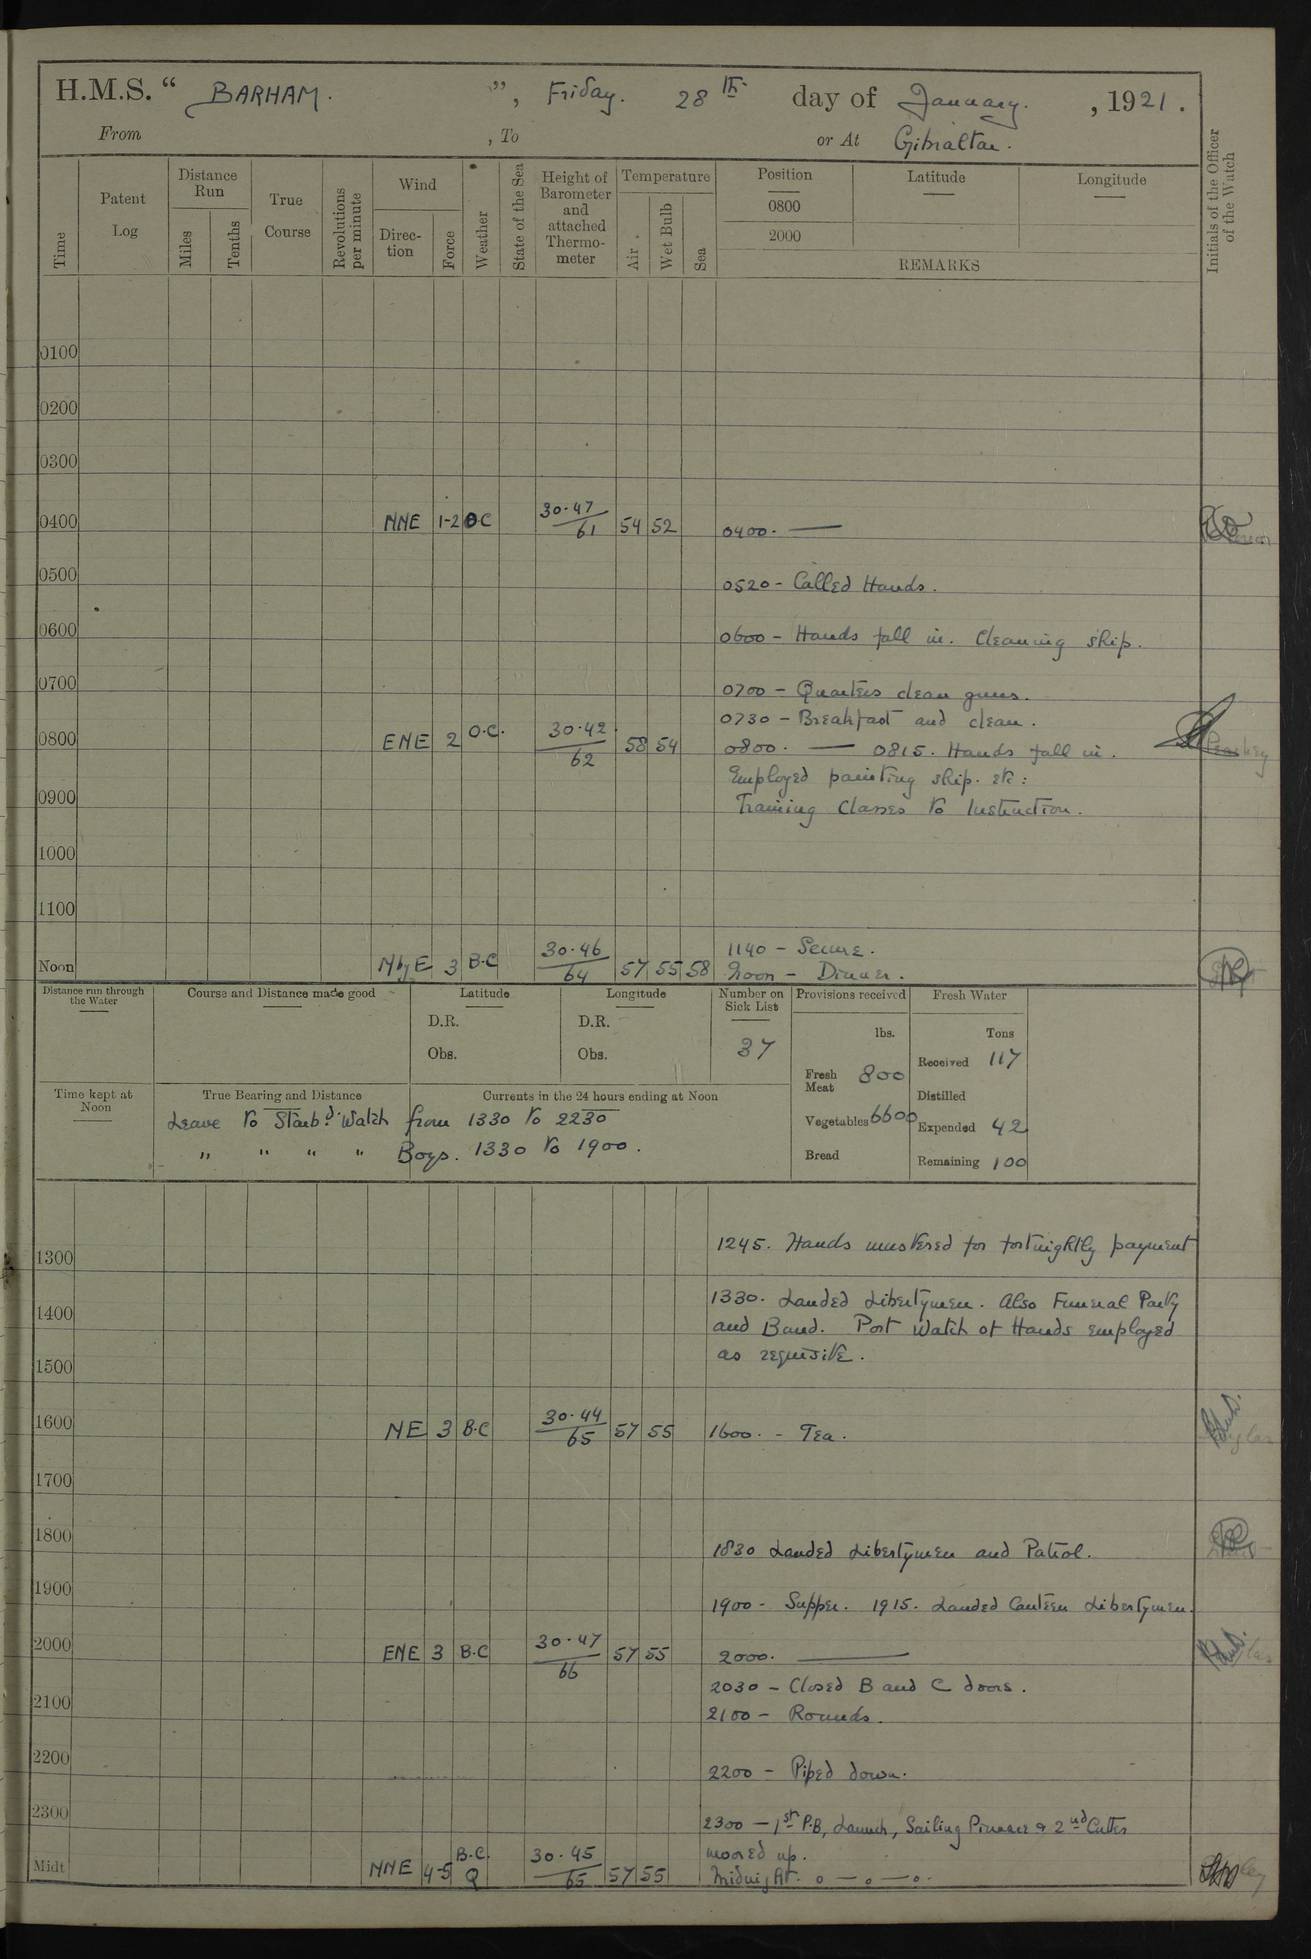 H.M.S. “ BARHAM. ”, Friday. 28th day of January. , 1921.
From , To or At Gibraltar.
Time
Patent Log
Distance Run
Miles
Tenths
True Course
Revolutions per minute
Wind
Direc-tion
Force
Weather
State of the Sea
Height of Barometer and attached Thermo-meter
Temperature
Air
Wet Bulb
Sea
Position
Latitude
Longitude
0800
2000
REMARKS
Initials of the Officer of the Watch
0100
0200
0300
0400 NNE 1-2 O.C 30.47/61 54 52 0400. —
0500
0520 - Called Hands.
0600
0600 - Hands fall in. Cleaning ship.
0700
0700 - Quarters clean guns.
0730 - Breakfast and clean.
0800 ENE 2 O.C. 30.42/62 58 54 0800. — 0815. Hands fall in.
Employed painting ship. etc:
0900
Training Classes to Instruction.
1000
1100
1140 - Secure.
Noon N by E 3 B.C 30.46/64 57 55 58 Noon - Dinner.
Distance run through the Water
Course and Distance made good
Latitude
D.R.
Obs.
Longitude
D.R.
Obs.
Number on Sick List
37
Provisions received
lbs.
Fresh Meat 800
Vegetables 6600
Bread
Fresh Water
Tons
Received 117
Distilled
Expended 42
Remaining 100
Time kept at Noon
True Bearing and Distance
Currents in the 24 hours ending at Noon
Leave to Starbd. Watch from 1330 to 2230
„ „ „ „ Boys. 1330 to 1900.
1245. Hands mustered for fortnightly payment
1300
1330. Landed Libertymen. Also Funeral Party
1400
and Band. Port Watch of Hands employed
as requisite.
1500
1600 NE 3 B.C 30.44/65 57 55 1600. - Tea.
1700
1800
1830 Landed Libertymen and Patrol.
1900
1900 - Supper. 1915. Landed Canteen Libertymen.
2000 ENE 3 B.C 30.47/66 57 55 2000. —
2030 - Closed B and C doors.
2100
2100 - Rounds.
2200
2200 - Piped down.
2300
2300 — 1st P.B, Launch, Sailing Pinnace & 2nd Cutter
moored up.
Midt NNE 4-5 B.C. Q 30.45/65 57 55 Midnight. o — o — o.